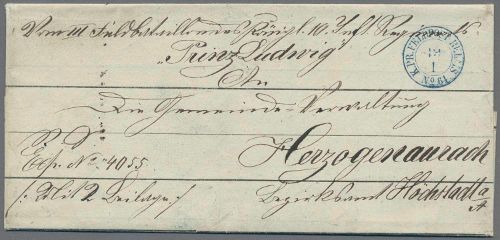 Vom III Feldbataillon des Königl. 10. Inft. Regiments
"Prinz Ludwig"
An
K.PR. FELDPOST-RELAIS
No 61
Die Gemeinde-Verwaltung
Herzogenaurach
Exp. No. 4055
/: Mit 2 Beilagen :/
Bezirksamt Höchstadt a/A